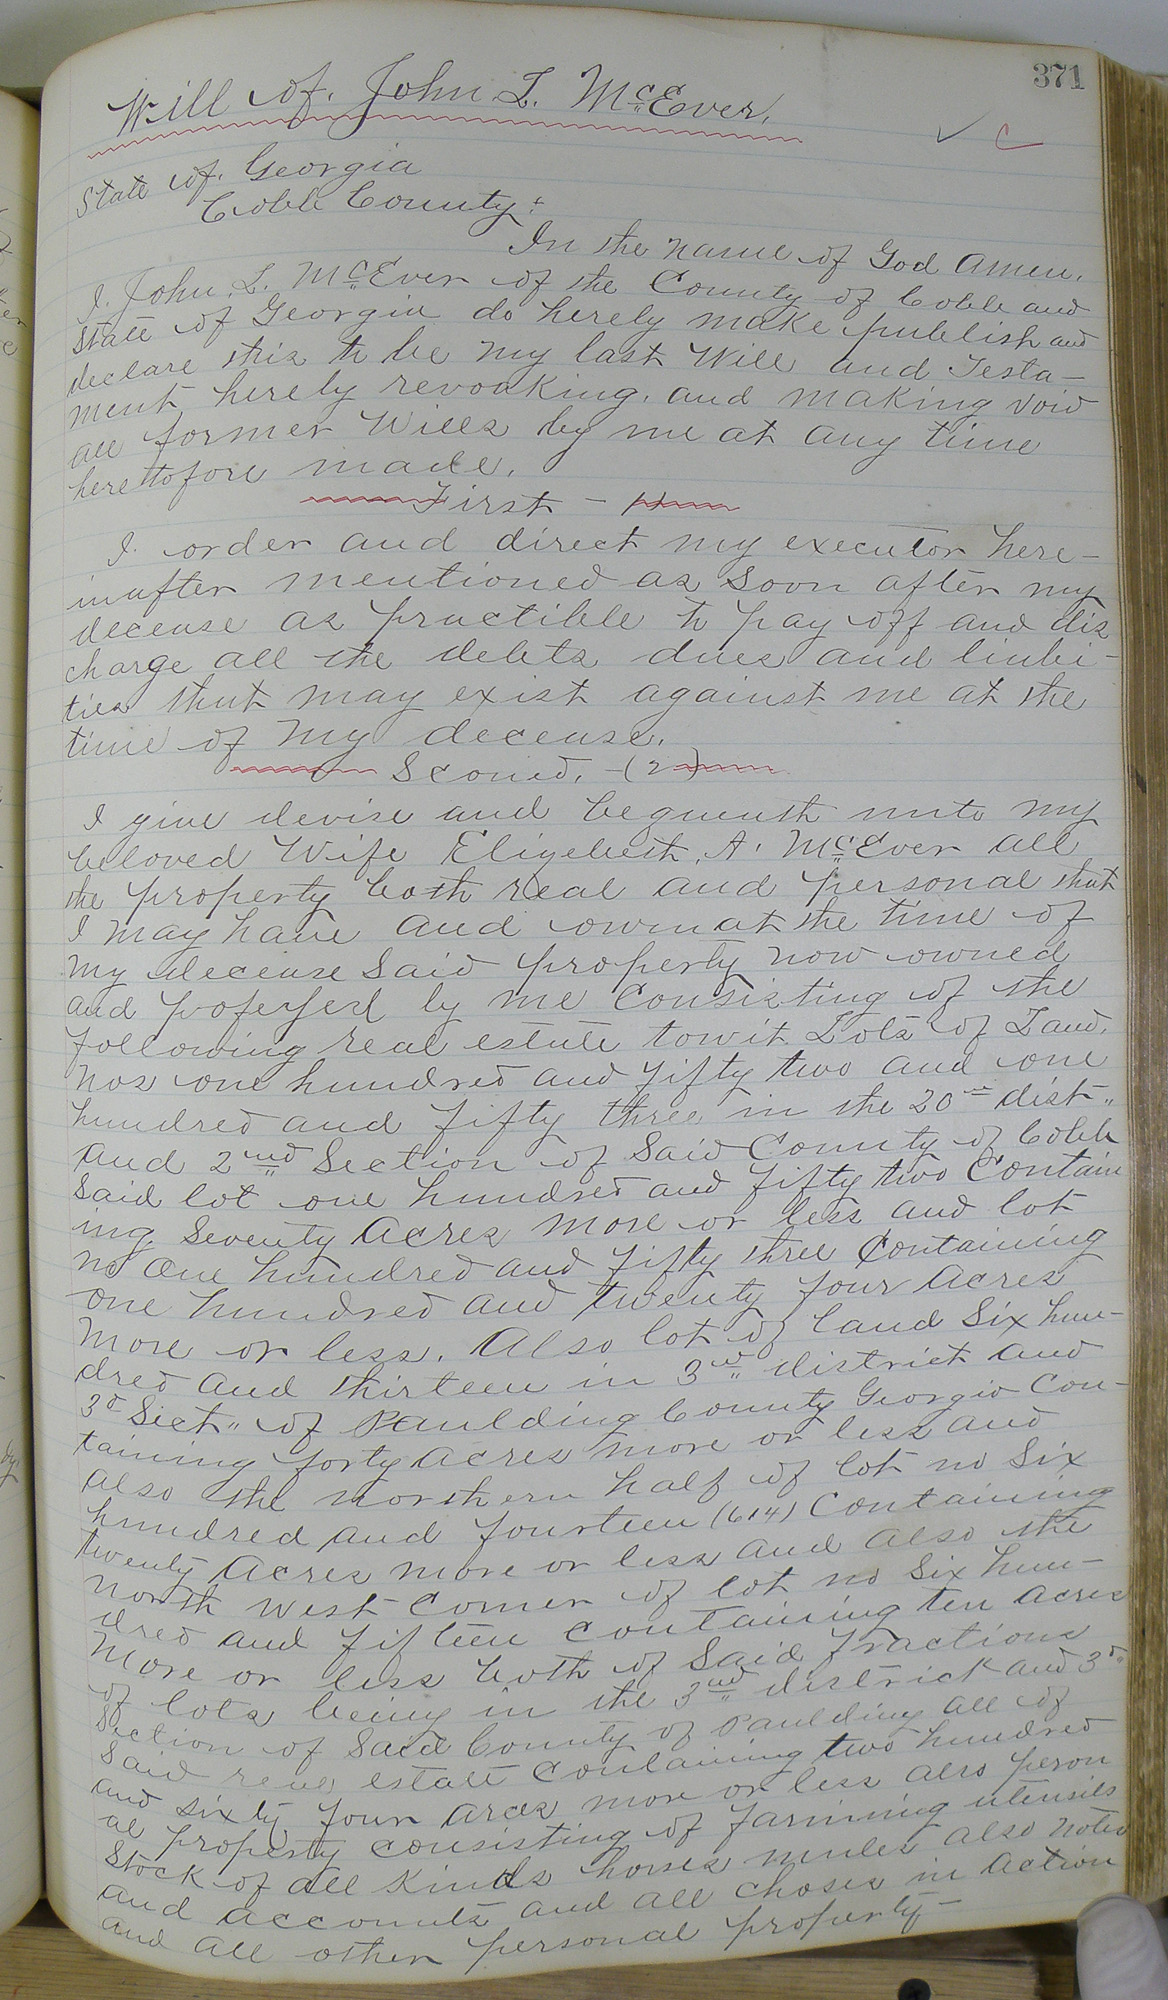 371
Will of. John L. McEver.
✓ C
State of. Georgia
Cobb County:
In the name of God Amen.
I. John. L. McEver of the County of Cobb and
State of Georgia do herely make publish and
declare this to be my last Will and Testa-
ment herely revoaking. and making void
all former Wills by me at any time
heretofore made.
First -
I. order and direct my executor here-
inafter mentioned as soon after my
decease as practible to pay off and dis
charge all the debts dues and liabi-
ties that may exist against me at the
time of my decease.
Scond. - (2)
I give devise and bequeath unto my
beloved Wife Elizebeth. A. McEver all
the property both real and personal that
I may have and own at the time of
my decease Said property now owned
and by me Consisting of the
following real estate towit Lots of Land.
nos one hundred and fifty two and one
hundred and fifty three in the 20th dist"
and 2nd Section of Said County of Cobb
Said lot one hundred and fifty two Contain
ing Seventy Acres more or less and lot
no One hundred and fifty three Containing
one hundred and twenty four acres
more or less. Also lot of land Six hun-
dred and thirteen in 3rd district and
3d Sect" of Paulding County Georgia Con-
taining forty acres more or less and
also the northern half of lot no Six
hundred and fourteen (614) Containing
twenty Acres more or less and also the
north west Corner of lot no Six hun-
dred and fifteen containing ten acres
more or less both of Said fractions
of lots being in the 3rd district and 3d"
Section of Said County of Paulding all of
Said real estate Containing two hundred
and sixty four acres more or less also person
al property consisting of farming utensils
Stock of all Kinds horses mules also notes
and accounts and all choses in action
and all other personal property-